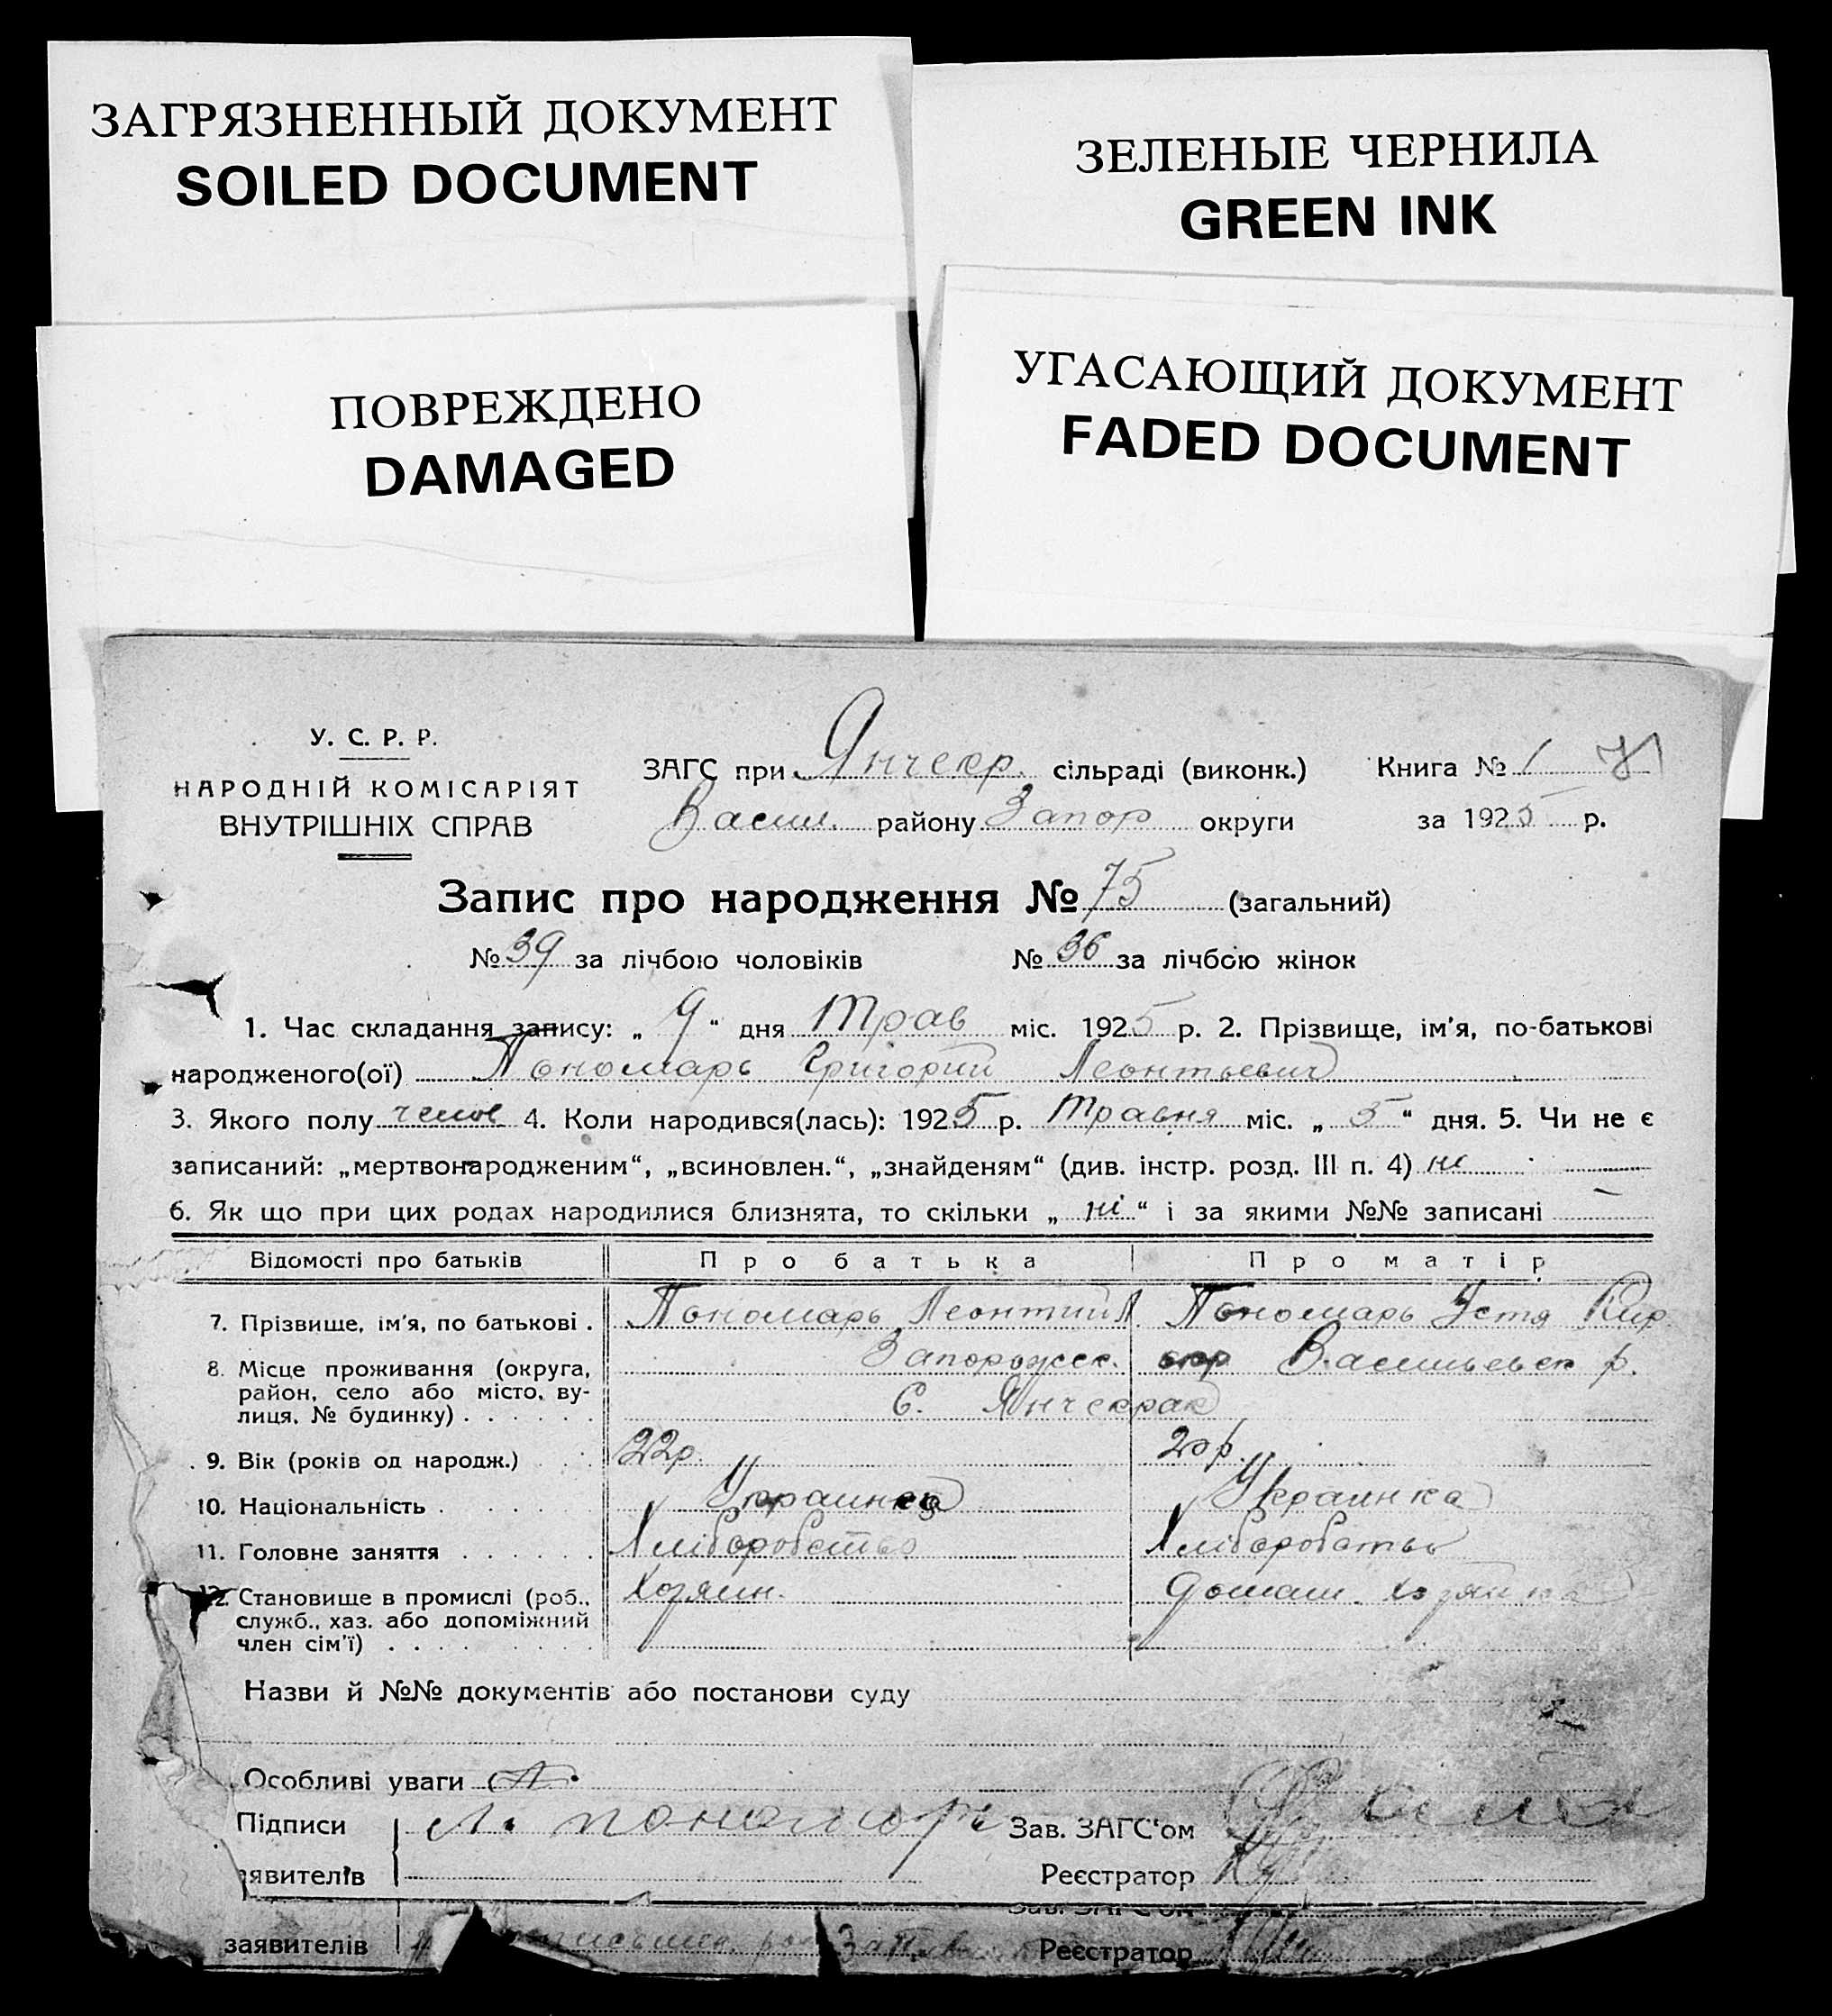 ЗАГРЯЗНЕННЫЙ ДОКУМЕНТ
SOILED DOCUMENT
ЗЕЛЕНЫЕ ЧЕРНИЛА
GREEN INK
ПОВРЕЖДЕНО
DAMAGED
УГАСАЮЩИЙ ДОКУМЕНТ
FADED DOCUMENT
У. С. Р. Р.
НАРОДНІЙ КОМІСАРІЯТ
ВНУТРІШНІХ СПРАВ
ЗАГС при Янчекр. сільраді (виконк.) Книга № 1
Васил. району Запор округи за 1925 р.
Запис про народження № 75 (загальний)
№ 39 за лічбою чоловіків № 36 за лічбою жінок
1. Час складання запису: „ 9 “ дня Трав міс. 1925 р. 2. Прізвище, ім'я, по-батькові
народженого(ої) Пономарь Григорий Леонтьевич
3. Якого полу челов 4. Коли народився(лась): 1925 р. Травня міс. „ 5 “ дня. 5. Чи не є
записаний: „мертвонародженим“, „всиновлен.“, „знайденям“ (див. інстр. розд. III п. 4) ні
6. Як що при цих родах народилися близнята, то скільки „ ні “ і за якими №№ записані —
Відомості про батьків Про батька Про матір
7. Прізвище, ім'я, по батькові . Пономарь Леонтий Л. Пономарь Устя Кир.
8. Місце проживання (округа, район, село або місто, вулиця, № будинку) . . . . . . Запорожск. окр Васильевск р.
С. Янчекрак
9. Вік (років од народж.) 22р. 20р.
10. Національність . Украинец Украинка
11. Головне заняття . . . . . . Хліборобство Хліборобство
12. Становище в промислі (роб., служб., хаз. або допоміжний член сім'ї) . . . . Хозяин. домаш. хозяйка
Назви й №№ документів або постанови суду
Особливі уваги
Підписи Л. пономарь Зав. ЗАГС'ом
явителів Реєстратор
заявителів Реєстратор